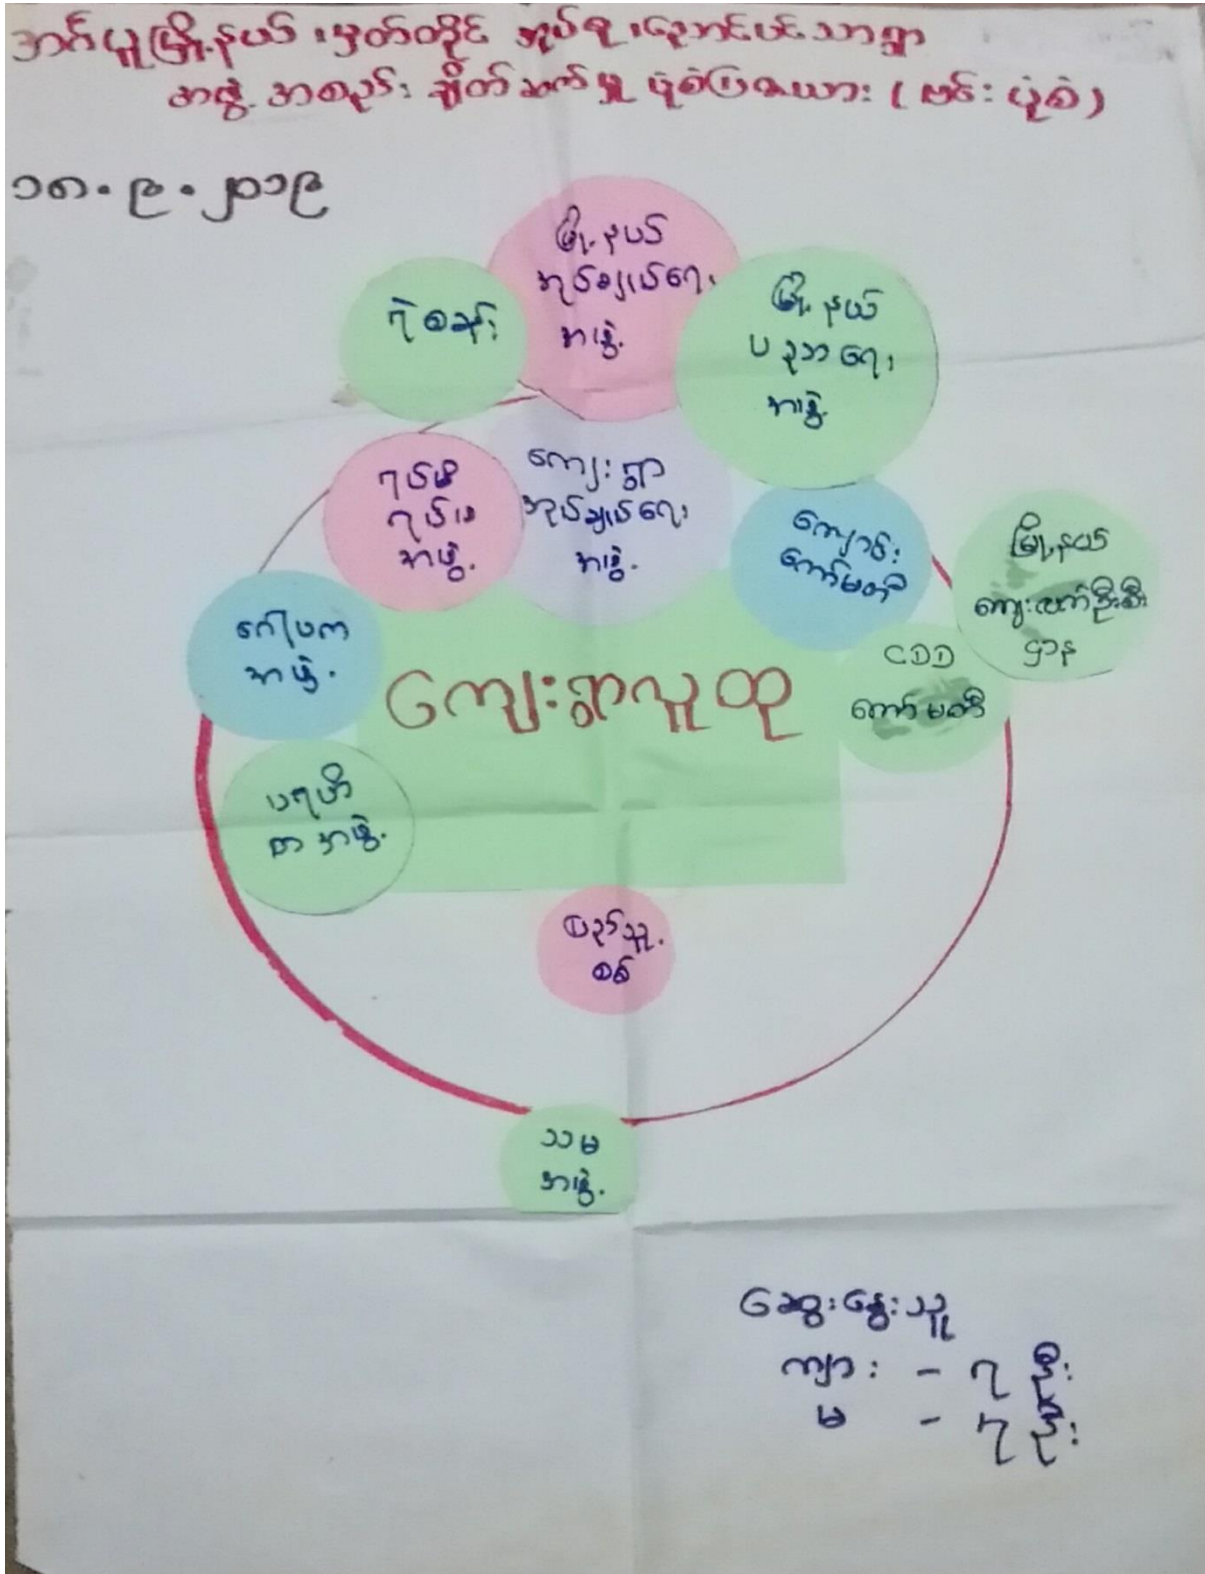 အင်္ဂပူမြို့နယ်၊ မှတ်တိုင် အုပ်စု၊ ညောင်ပင်သာရွာ
အဖွဲ့အစည်း ချိတ်ဆက်မှု ပုံစံပြဇယား (ဗင်းပုံစံ)
၁၈.၉.၂၀၁၉
မြို့နယ်
အုပ်ချုပ်ရေး
အဖွဲ့
ရဲစခန်း
မြို့နယ်
ပညာရေး
အဖွဲ့
ရပ်မိ
ရပ်ဖ
အဖွဲ့
ကျေးရွာ
အုပ်ချုပ်ရေး
အဖွဲ့
ကျောင်း
ကော်မတီ
မြို့နယ်
ကျေးလက်ဦးစီး
ဌာန
ဂေါပက
အဖွဲ့
CDD
ကော်မတီ
ကျေးရွာလူထု
ပရဟိ
တအဖွဲ့
ပြည်သူ့
စစ်
သမ
အဖွဲ့
ဆွေးနွေးသူ
ကျား - ၇ ဦး
မ - ၇ ဦး